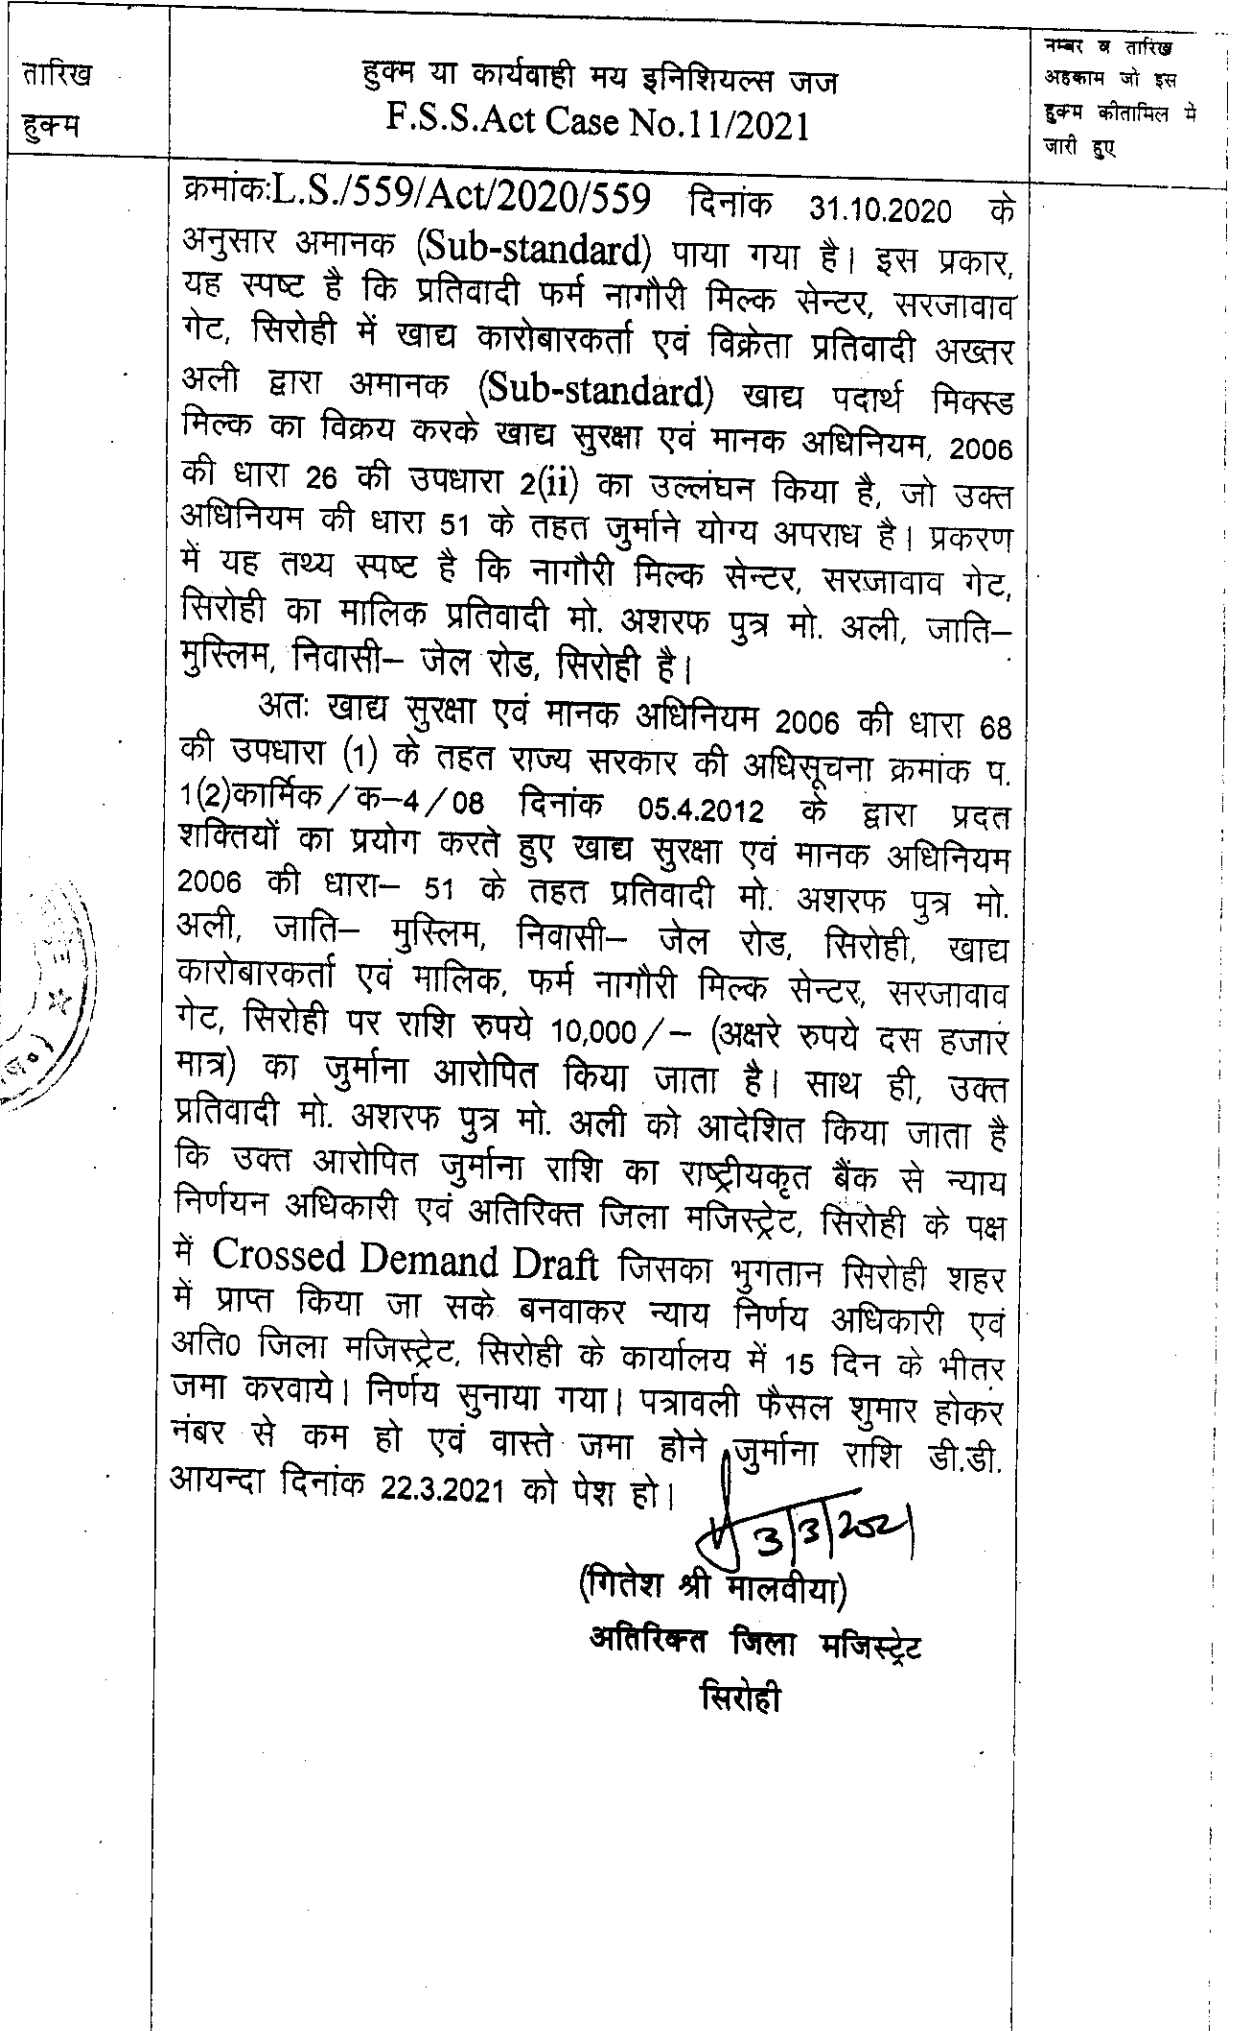 तारिख
हुक्म
हुक्म या कार्यवाही मय इनिशियल्स जज
F.S.S.Act Case No.11/2021
नम्बर व तारिख
अहकाम जो इस
हुक्म कीतामिल मे
जारी हुए
क्रमांक:L.S./559/Act/2020/559 दिनांक 31.10.2020 के
अनुसार अमानक (Sub-standard) पाया गया है। इस प्रकार,
यह स्पष्ट है कि प्रतिवादी फर्म नागौरी मिल्क सेन्टर, सरजावाव
गेट, सिरोही में खाद्य कारोबारकर्ता एवं विक्रेता प्रतिवादी अख्तर
अली द्वारा अमानक (Sub-standard) खाद्य पदार्थ मिक्स्ड
मिल्क का विक्रय करके खाद्य सुरक्षा एवं मानक अधिनियम, 2006
की धारा 26 की उपधारा 2(ii) का उल्लंघन किया है, जो उक्त
अधिनियम की धारा 51 के तहत जुर्माने योग्य अपराध है। प्रकरण
में यह तथ्य स्पष्ट है कि नागौरी मिल्क सेन्टर, सरजावाव गेट,
सिरोही का मालिक प्रतिवादी मो. अशरफ पुत्र मो. अली, जाति–
मुस्लिम, निवासी– जेल रोड, सिरोही है।
अतः खाद्य सुरक्षा एवं मानक अधिनियम 2006 की धारा 68
की उपधारा (1) के तहत राज्य सरकार की अधिसूचना क्रमांक प.
1(2)कार्मिक/क–4/08 दिनांक 05.4.2012 के द्वारा प्रदत
शक्तियों का प्रयोग करते हुए खाद्य सुरक्षा एवं मानक अधिनियम
2006 की धारा– 51 के तहत प्रतिवादी मो. अशरफ पुत्र मो.
अली, जाति– मुस्लिम, निवासी– जेल रोड, सिरोही, खाद्य
कारोबारकर्ता एवं मालिक, फर्म नागौरी मिल्क सेन्टर, सरजावाव
गेट, सिरोही पर राशि रुपये 10,000/– (अक्षरे रुपये दस हजार
मात्र) का जुर्माना आरोपित किया जाता है। साथ ही, उक्त
प्रतिवादी मो. अशरफ पुत्र मो. अली को आदेशित किया जाता है
कि उक्त आरोपित जुर्माना राशि का राष्ट्रीयकृत बैंक से न्याय
निर्णयन अधिकारी एवं अतिरिक्त जिला मजिस्ट्रेट, सिरोही के पक्ष
में Crossed Demand Draft जिसका भुगतान सिरोही शहर
में प्राप्त किया जा सके बनवाकर न्याय निर्णय अधिकारी एवं
अति0 जिला मजिस्ट्रेट, सिरोही के कार्यालय में 15 दिन के भीतर
जमा करवाये। निर्णय सुनाया गया। पत्रावली फैसल शुमार होकर
नंबर से कम हो एवं वास्ते जमा होने जुर्माना राशि डी.डी.
आयन्दा दिनांक 22.3.2021 को पेश हो।
3/3/2021
(गितेश श्री मालवीया)
अतिरिक्त जिला मजिस्ट्रेट
सिरोही